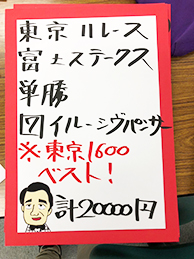 東京11レース
富士ステークス
単勝
④イルーシヴパンサー
※東京1600
ベスト!
計20000円